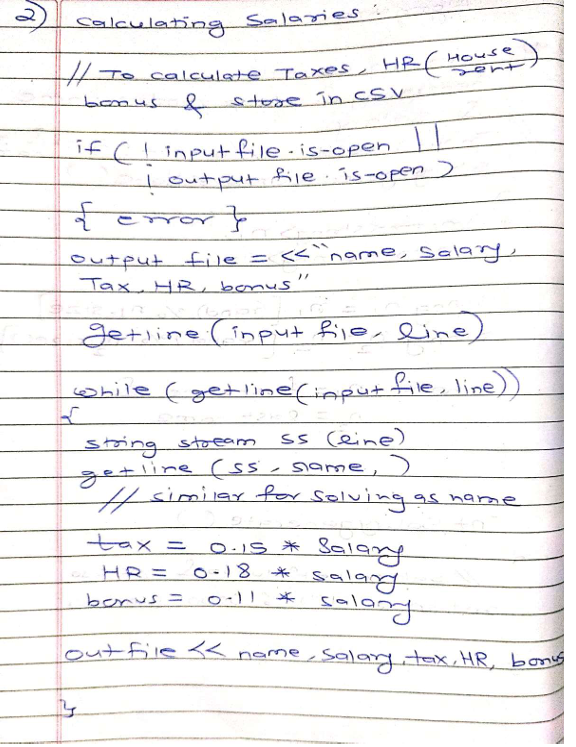 2) Calculating Salaries :
// To calculate Taxes, HR (House rent)
bonus & store in CSV
if ( ! input file . is-open ||
! output file . is-open )
{ error }
output file = << "name, Salary,
Tax, HR, bonus"
getline (input file, line)
while ( getline (input file, line))
{
string stream ss (line)
getline (ss, name, )
// similar for solving as name
tax = 0.15 * Salary
HR = 0.18 * salary
bonus = 0.11 * salary
outfile << name, salary, tax, HR, bonus
}